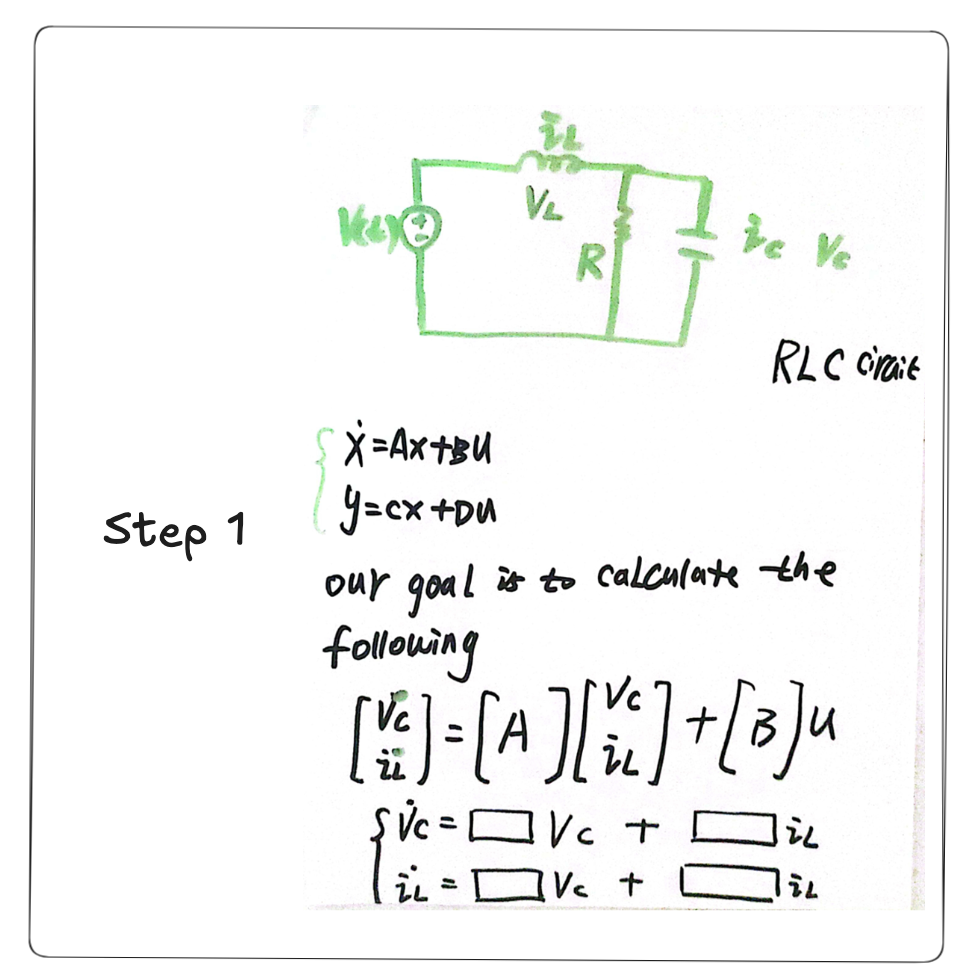 iL
VL
V(t)
R
ic Vc
RLC circuit
ẋ=Ax+Bu
y=cx+Du
Step 1
our goal is to calculate the
following
[V̇c i̇L] = [A][Vc iL] + [B]u
V̇c = □ Vc + □ iL
i̇L = □ Vc + □ iL